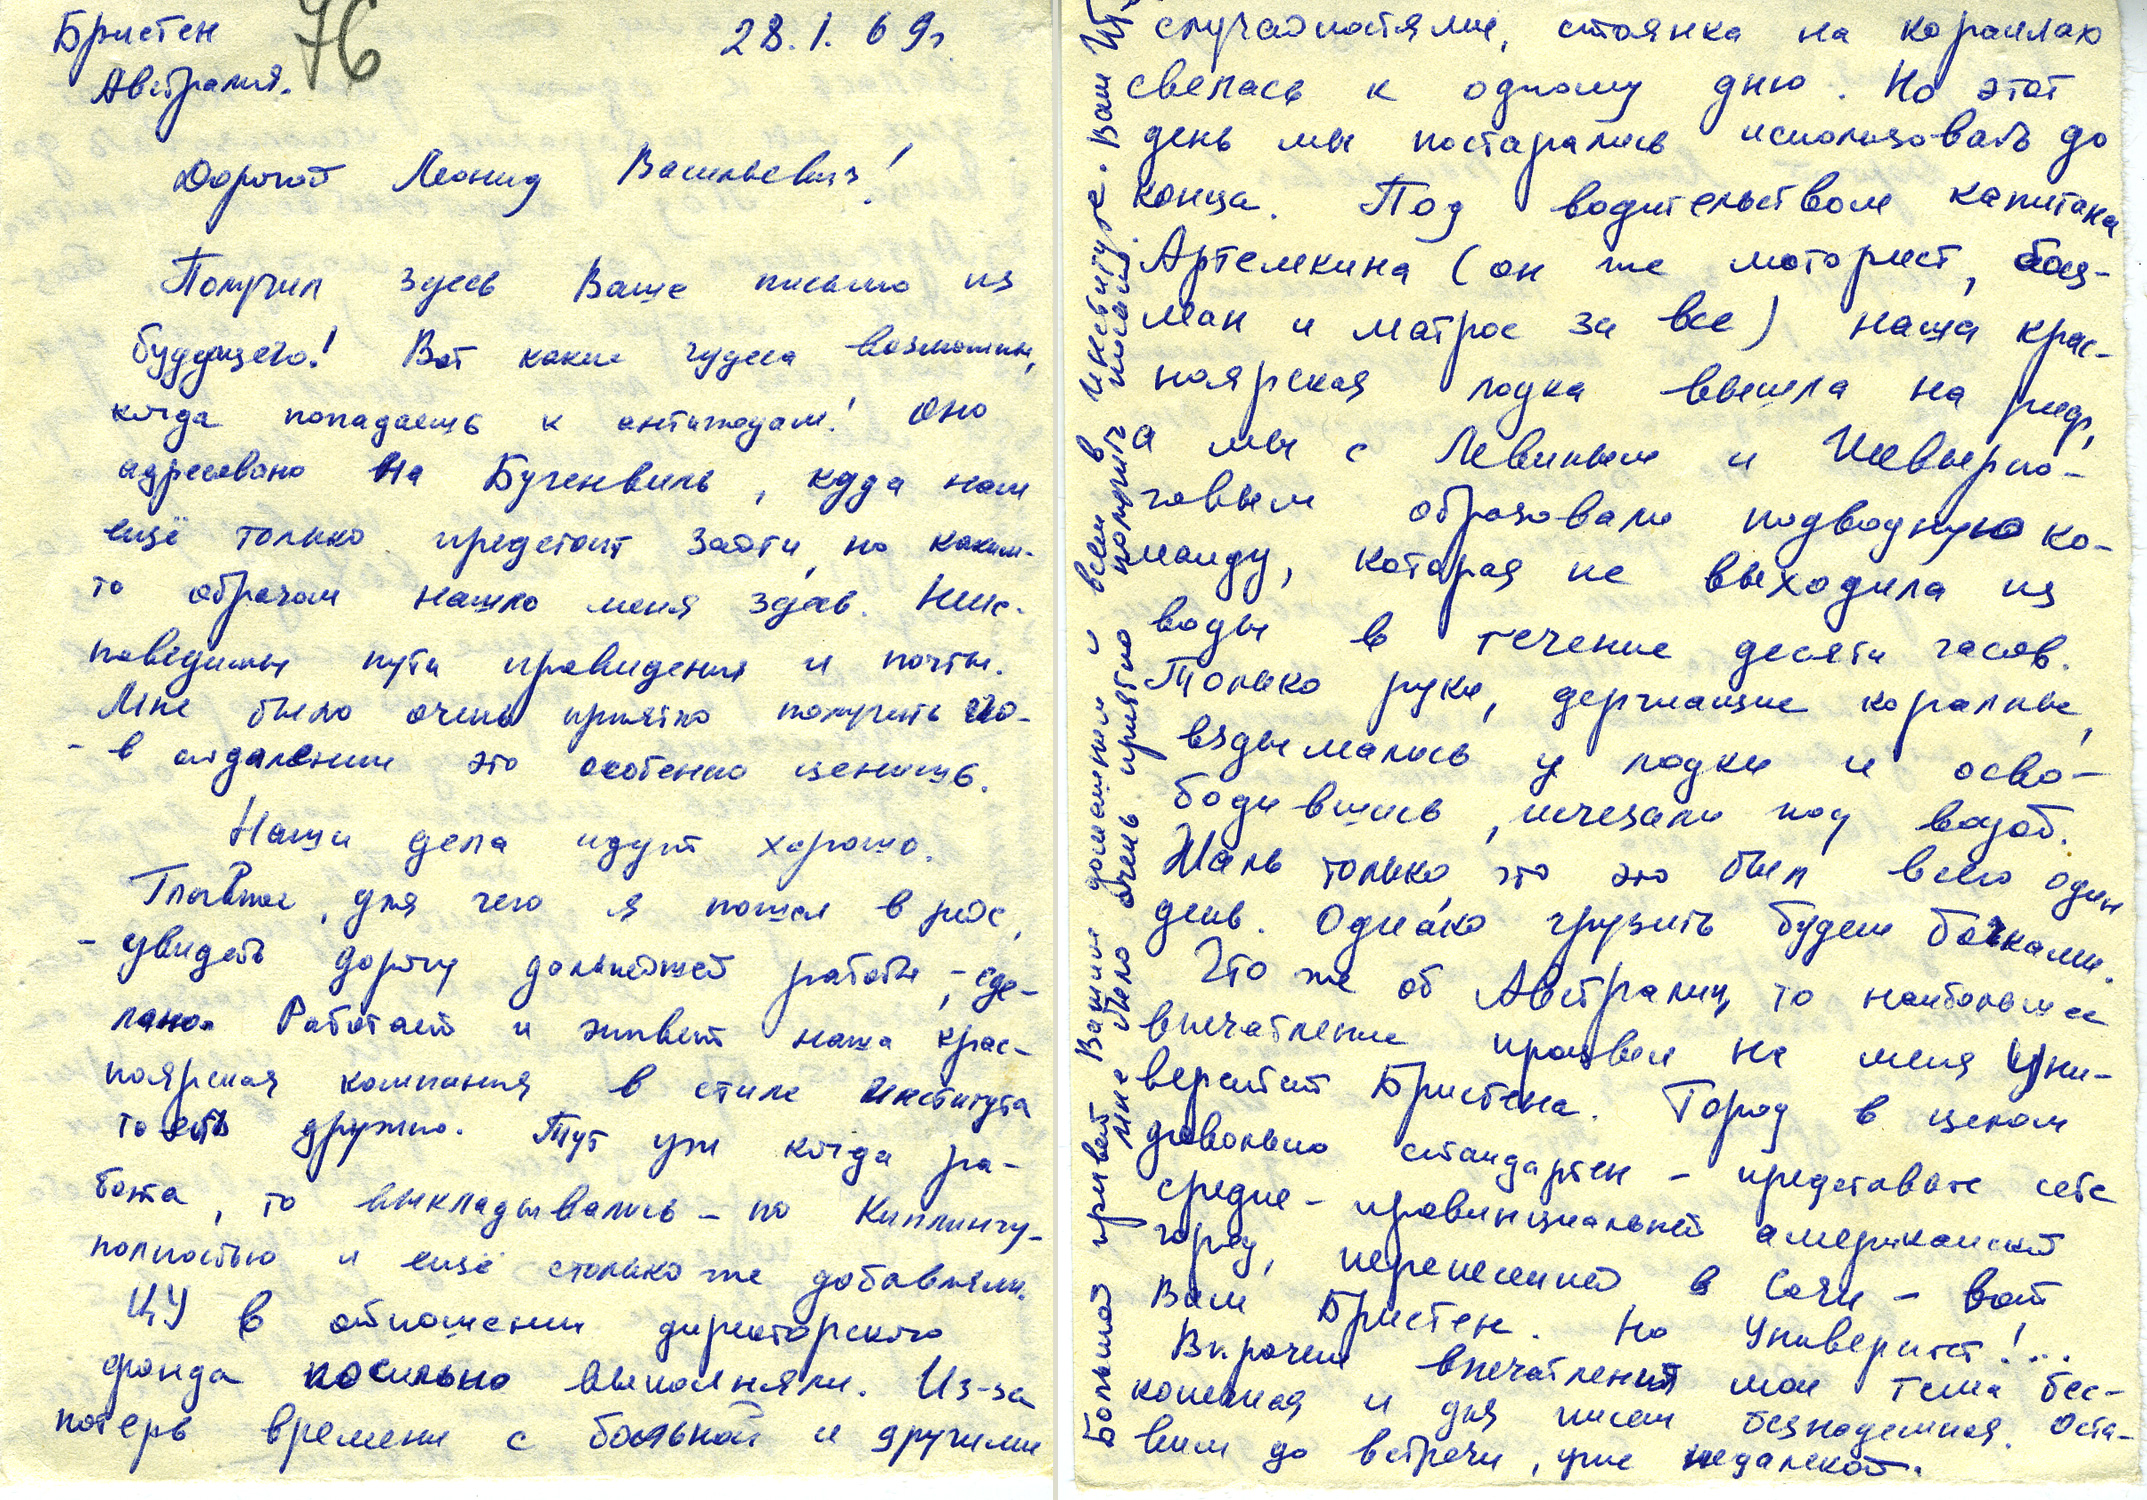 Бристен
76
28.1.69г
Австралия.
Дорогой Леонид Васильевич!
Получил здесь Ваше письмо из
будущего! Вот какие чудеса возможны,
когда попадаешь к антиподам! Оно
адресовано на Бугенвиль, куда нам
ещё только предстоит зайти, но каким-
то образом нашло меня здесь. Неис-
поведимы пути провидения и почты.
Мне было очень приятно получить его-
- в отдалении это особенно ценишь.
Наши дела идут хорошо.
Главное, для чего я пошел в рейс,
- увидеть дорогу дальнейшей работы, - сде-
лано. Работает и живет наша крас-
ноярская компания в стиле института
то есть дружно. Тут уж когда ра-
бота, то выкладывались - по Киплингу -
полностью и ещё столько же добавляли.
ЦУ в отношении директорского
фонда посильно выполняли. Из-за
потерь времени с больной и другими
случайностями, стоянка на кораллах
свелась к одному дню. Но этот
день мы постарались использовать до
конца. Под водительством капитана
Артемкина (он же моторист, боц-
ман и матрос за все) наша крас-
ноярская лодка вышла на риф,
а мы с Левиным и Шевырно-
говым образовали подводную ко-
манду, которая не выходила из
воды в течение десяти часов.
Только руки, держащие кораллы,
вздымались у лодки и осво-
бодившись, исчезали под водой.
Жаль только, что это был всего один
день. Однако грузить будем бочками.
Что же об Австралии, то наибольшее
впечатление произвел на меня Уни-
верситет Бристена. Город в целом
довольно стандартен - представьте себе
средне-провинциальный американский
город, перенесенный в Сочи - вот
Вам Бристен. Но Университет!...
Впрочем впечатления мои тема бес-
конечная и для писем безнадежная. Оста-
вим до встречи, уже недалекой.
Большой привет Вашим домашним и всем в институте. Ваш
Мне было очень приятно получить письмо.